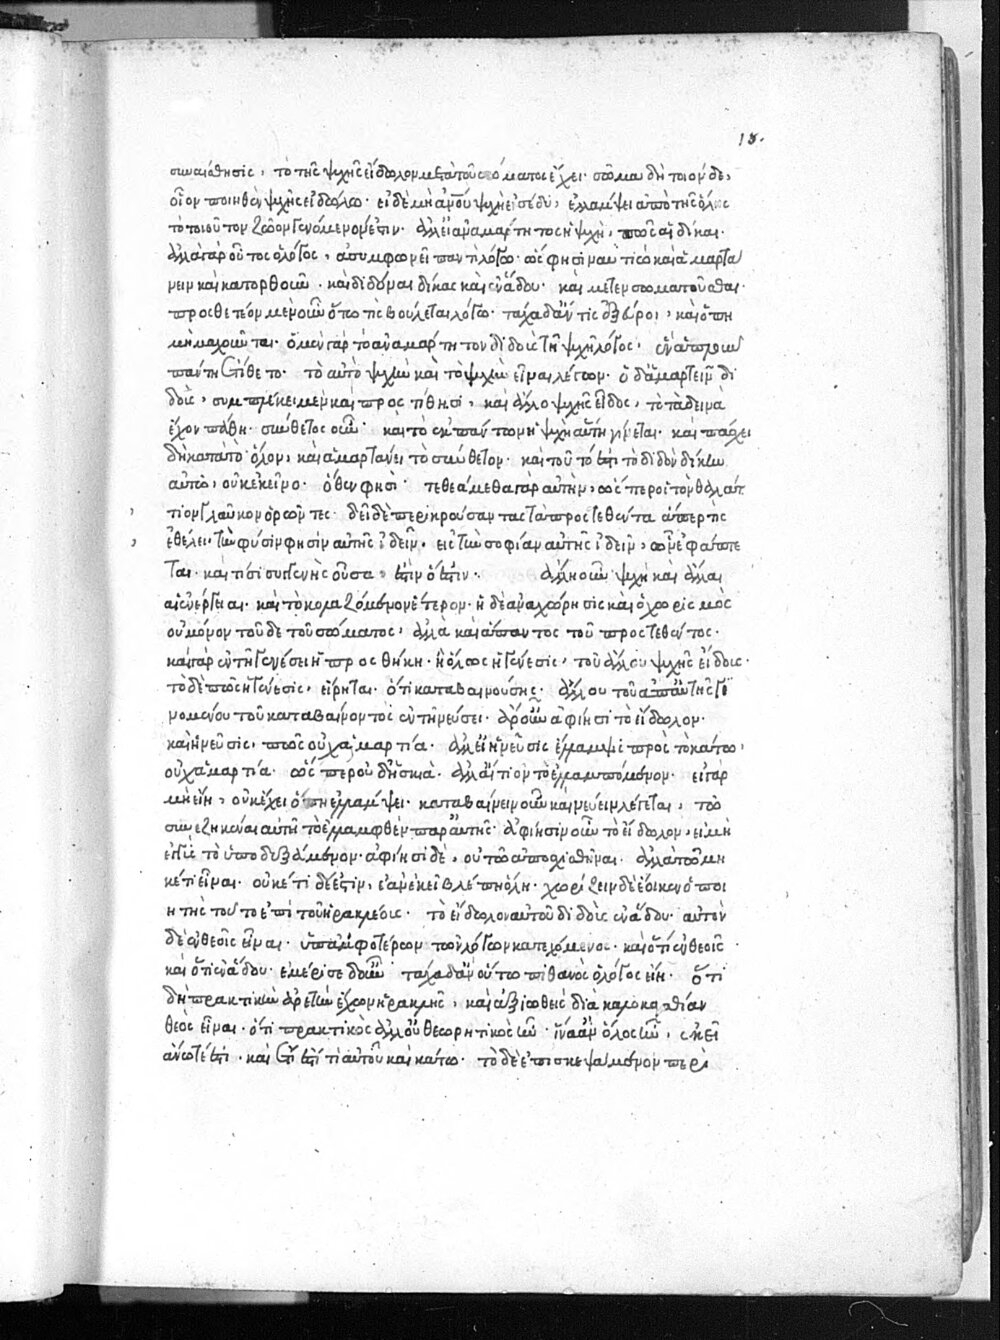 συναίσθησις, τὸ τῆς ψυχῆς εἴδωλον μετὰ τοῦ σώματος ἔχει· σῶμα δὴ τοιόνδε,
οἷον ποιηθὲν ψυχῆς εἰδώλῳ· εἰ δὲ μὴ ἀνου ψυχὴ εἰσέδυ, ἐλλάμψει ἀπὸ τῆς ὅλης
τὸ τοιοῦτον ζῶον γενόμενον ἐστιν· ἀλλ' εἰ ἀναμάρτητος ἡ ψυχὴ, πῶς αἱ δίκαι·
ἀλλὰ γὰρ οὗτος ὁ λόγος, ἀσυμφωνεῖ παντὶ λόγῳ· ὅς φησιν αὐτὴν καὶ ἁμαρτά
νειν καὶ κατορθοῦν· καὶ διδόναι δίκας καὶ ἐν ἅδου· καὶ μετενσωματοῦσθαι·
προσθετέον μὲν οὖν ὅτῳ τὶς βούλεται λόγῳ· τάχα δ' ἄν τις ἐξεύροι, καὶ ὅπη
μὴ μαχοῦνται· ὁ μὲν γὰρ τὸ ἀναμάρτητον διδοὺς τῇ ψυχῇ λόγος, ἓν ἁπλοῦν
πάντη ἐτίθετο· τὸ αὐτὸ ψυχὴν καὶ τὸ ψυχῇ εἶναι λέγων· ὁ δ' ἁμαρτεῖν δι
δοὺς, συμπλέκει μὲν καὶ προστίθησι, καὶ ἄλλο ψυχῆς εἶδος, τὸ τὰ δεινὰ
ἔχον πάθη· σύνθετος οὖν καὶ τὸ ἐκ πάντων ἡ ψυχὴ αὕτη γίνεται· καὶ πάσχει
δὴ κατὰ τὸ ὅλον, καὶ ἁμαρτάνει τὸ σύνθετον· καὶ τοῦτό ἐστι τὸ διδὸν δίκην
αὐτῷ, οὐκ ἐκεῖνο· ὅθεν φησὶ τεθεάμεθα γὰρ αὐτὴν, ὥσπερ οἱ τὸν θαλάτ
τιον γλαῦκον ὁρῶντες· δεῖ δὲ περικρούσαντας τὰ προστεθέντα εἴπερ τὶς
ἐθέλει τὴν φύσιν φησὶν αὐτῆς ἰδεῖν, εἰς τὴν σοφίαν αὐτῆς ἰδεῖν, ὧν ἐφάπτε
ται· καὶ τίσι συγγενὴς οὖσα, ἐστὶν ὅ ἐστιν· ἄλλη οὖν ψυχὴ καὶ ἄλλαι
αἱ ἐνέργειαι· καὶ τὸ κολαζόμενον ἕτερον· ἡ δὲ ἀναχώρησις καὶ ὁ χωρισμὸς
οὐ μόνον τοῦδε τοῦ σώματος, ἀλλὰ καὶ ἅπαντος τοῦ προστεθέντος·
καὶ γὰρ ἐν τῇ γενέσει ἡ προσθήκη· ἢ ὅλως ἡ γένεσις, τοῦ ἄλλου ψυχῆς εἴδους·
τὸ δὲ πῶς ἡ γένεσις, εἴρηται· ὅτι καταβαινούσης· ἄλλου του ἀπ' αὐτῆς γι
νομένου τοῦ καταβαίνοντος ἐν τῇ νεύσει· ἆρ' οὖν ἀφίησι τὸ εἴδωλον·
καὶ ἡ νεῦσις, πῶς οὐχ ἁμαρτία· ἀλλ' εἰ ἡ νεῦσις ἔλλαμψις πρὸς τὸ κάτω,
οὐχ ἁμαρτία· ὥσπερ οὐδ' ἡ σκιὰ· ἀλλ' αἴτιον τὸ ἐλλαμπόμενον· εἰ γὰρ
μὴ εἴη, οὐκ ἔχει ὅπη ἐλλάμψει· καταβαίνειν οὖν καὶ νεύειν λέγεται, τῷ
συνεζηκέναι αὐτῇ τὸ ἐλλαμφθὲν παρ' αὐτῆς· ἀφίησιν οὖν τὸ εἴδωλον, εἰ μὴ
ἐγγὺς τὸ ὑποδεξάμενον· ἀφίησι δὲ, οὐ τῷ ἀποσχισθῆναι· ἀλλὰ τῷ μη
κέτι εἶναι· οὐκέτι δέ ἐστιν, ἐὰν ἐκεῖ βλέπῃ ὅλη· χωρίζειν δὲ ἔοικεν ὁ ποι
ητὴς τοῦτο ἐπὶ τοῦ ἡρακλέους· τὸ εἴδωλον αὐτοῦ διδοὺς ἐν ἅδου· αὐτὸν
δὲ ἐν θεοῖς εἶναι· ὑπ' ἀμφοτέρων τῶν λόγων κατεχόμενος· καὶ ὅτι ἐν θεοῖς·
καὶ ὅτι ἐν ἅδου· ἐμέρισε δ' οὖν τάχα δ' ἂν οὕτω πιθανὸς ὁ λόγος εἴη· ὅτι
δὴ πρακτικὴν ἀρετὴν ἔχων ἡρακλῆς, καὶ ἀξιωθεὶς διὰ καλοκαγαθίαν
θεὸς εἶναι· ὅτι πρακτικὸς ἀλλ' οὐ θεωρητικὸς ἦν· ἵνα ἂν ὅλος ἦν, ἐκεῖ
ἄνω τέ ἐστι· καὶ ἔτι ἐστί τι αὐτοῦ καὶ κάτω· τὸ δὲ ἐπισκεψάμενον περὶ